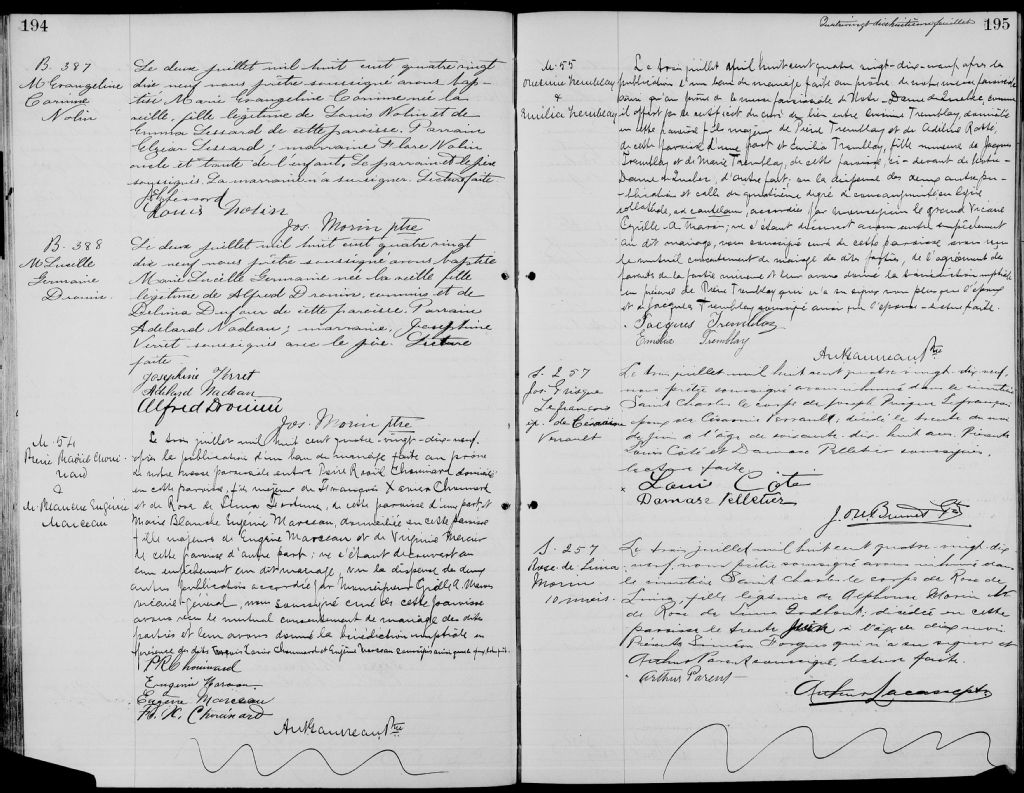 194
B. 387
M Evangeline
Corinne
Nolin
Le deux juillet mil huit cent quatre vingt
dix neuf nous prêtre soussigné avons bap-
tisé Marie Evangeline Corinne née la
veille, fille légitime de Louis Nolin et de
Emma Lessard de cette paroisse. Parrain
Elzéar Lessard; marraine Flore Nolin
oncle et tante de l'enfant. Le parrain et le père
soussignés. La marraine n'a su signer. Lecture faite
Lessard
Louis Nolin
Jos. Morin ptre
B. 388
M Lucille
Germaine
Drouin
Le deux juillet mil huit cent quatre vingt
dix neuf nous prêtre soussigné avons baptisé
Marie Lucille Germaine née la veille fille
légitime de Alfred Drouin, commis et de
Delima Dufour de cette paroisse. Parrain
Adelard Nadeau; marraine, Josephine
Verret soussignés avec le père. Lecture
faite
Josephine Verret
Adelard Nadeau
Alfred Drouin
Jos. Morin ptre
M. 54
Pierre Raoul Choui-
nard
&
M. Blanche Eugénie
Marceau
Le trois juillet mil huit cent quatre-vingt-dix-neuf
après la publication d'un ban de mariage faite au prône
de notre messe paroissiale entre Pierre Raoul Chouinard domicilié
en cette paroisse, fils majeur de François Xavier Chouinard
et de Rose de Lima Fortune, de cette paroisse d'une part, et
Marie Blanche Eugénie Marceau, domiciliée en cette paroisse
fille majeure de Eugène Marceau et de Virginie Mercier
de cette paroisse d'autre part; ne s'étant découvert au-
cun empêchement au dit mariage, vu la dispense de deux
autres publications accordée par Monseigneur Cyrille A. Marois
vicaire-général, nous soussigné curé de cette paroisse
avons reçu le mutuel consentement de mariage des dites
parties et leur avons donné la bénédiction nuptiale en
présence des dits François Xavier Chouinard et Eugène Marceau soussignés ainsi que
P R Chouinard
Eugénie Marceau
Eugène Marceau
F. X. Chouinard
Ptre
Quatrevingt dixhuitième feuillet
195
M. 55
Tremblay
&
Emilia Tremblay
Le trois juillet mil huit cent quatre vingt-dix-neuf après la
publication d'un ban de mariage faite au prône de notre messe paroissiale
ainsi qu'au prône de la messe paroissiale de Notre-Dame de Québec, comme
il appert par le certificat du curé du lieu entre Tremblay, domicilié
en cette paroisse fils majeur de Pierre Tremblay et de Adeline
de cette paroisse d'une part et Emilia Tremblay, fille mineure de Jacques
Tremblay et de Marie Tremblay, de cette paroisse, ci-devant de Notre-
Dame de Québec, d'autre part; vu la dispense des deux autres pu-
blications et celle du quatrième degré de consanguinité en ligne
collatérale, ad cautelam, accordée par monseigneur le grand Vicaire
Cyrille A. Marois; ne s'étant découvert aucun autre empêchement
au dit mariage, nous soussigné curé de cette paroisse avons reçu
le mutuel consentement de mariage des dites parties, de l'agrément des
parents de la partie mineure et leur avons donné la bénédiction nuptiale
en présence de Pierre Tremblay qui n'a su signer non plus que l'époux
et de Jacques Tremblay soussigné ainsi que l'épouse. Lecture faite.
Jacques Tremblay
Emilia Tremblay
Ptre
S. 257
Jos. Grisque
Lefrançois
ép. de Césarine
Verrault
Le trois juillet mil huit cent quatre-vingt-dix neuf,
nous prêtre soussigné avons inhumé dans le cimetière
Saint Charles le corps de Joseph Lefrançois
époux de Césarine Verrault; décédé le trente du mois
de juin à l'âge de soixante dix huit ans. Présents
Louis Côté et Damase Pelletier soussignés.
lecture faite.
Louis Côté
Damase Pelletier
J. Brunet Ptre
S. 257
Rose de Lima
Morin
10 mois.
Le trois juillet mil huit cent quatre-vingt-dix
neuf, nous prêtre soussigné avons inhumé dans
le cimetière Saint Charles le corps de Rose de
Lima, fille légitime de Alphonse Morin et
de Rose de Lima Godbout; décédée en cette
paroisse le trente juin à l'âge de dix mois.
Présents Siméon Forgues qui n'a su signer et
Arthur Parent soussigné, lecture faite.
Arthur Parent
Arthur Lacasse ptre